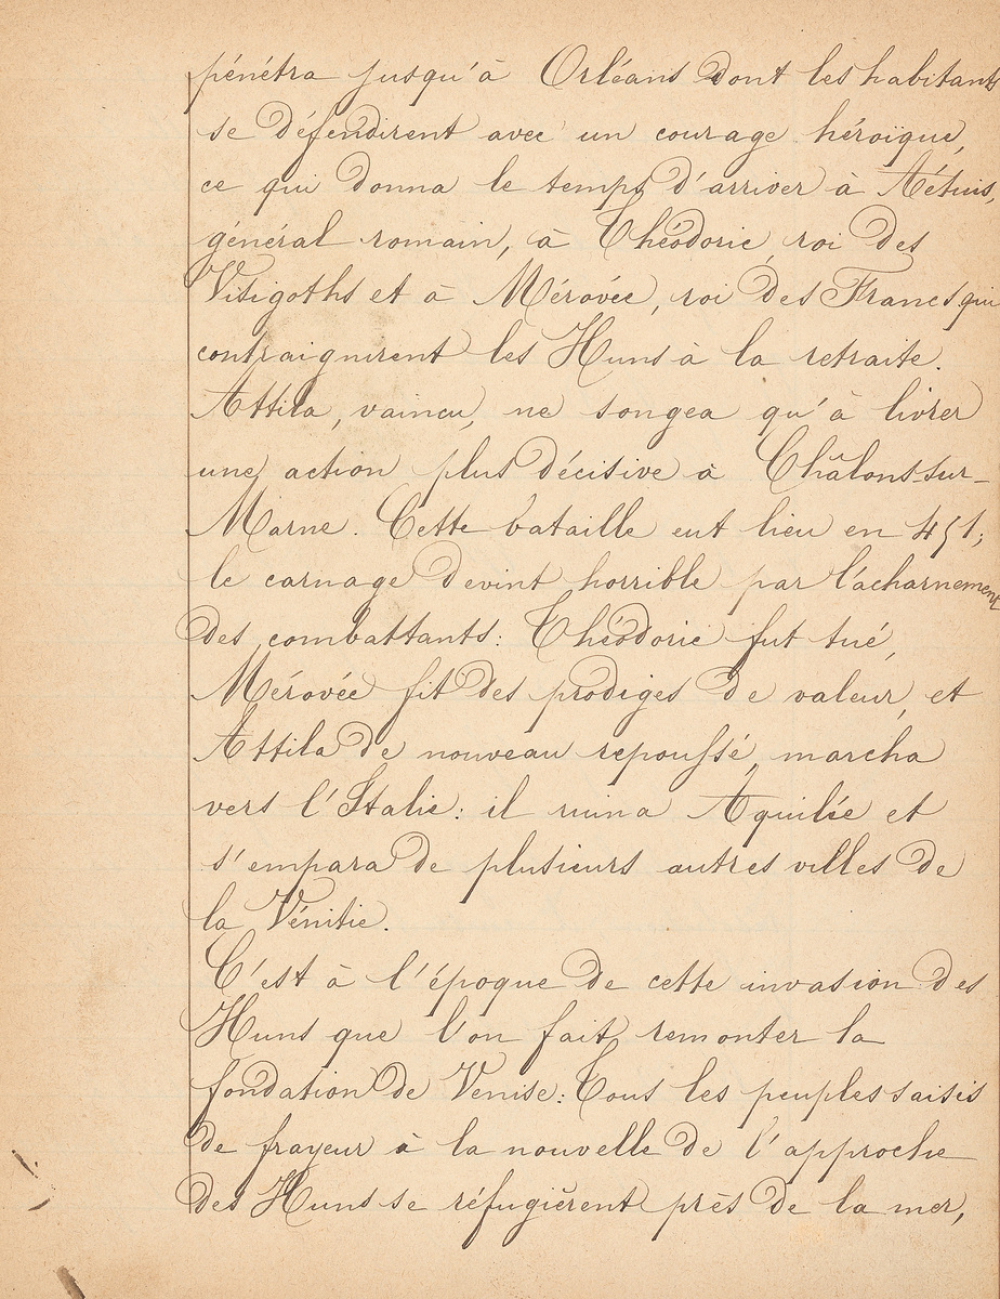 pénétra jusqu'à Orléans dont les habitants
se défendirent avec un courage héroïque,
ce qui donna le temps d'arriver à Aétius,
général romain, à Théodoric, roi des
Visigoths et à Mérovée, roi des Francs qui
contraignirent les Huns à la retraite.
Attila, vaincu, ne songea qu'à livrer
une action plus décisive à Châlons-sur-
Marne. Cette bataille eut lieu en 451;
le carnage devint horrible par l'acharnement
des combattants: Théodoric fut tué,
Mérovée fit des prodiges de valeur, et
Attila de nouveau repoussé, marcha
vers l'Italie: il ruina Aquilée et
s'empara de plusieurs autres villes de
la Vénitie.
C'est à l'époque de cette invasion des
Huns que l'on fait remonter la
fondation de Venise: Tous les peuples saisis
de frayeur à la nouvelle de l'approche
des Huns se réfugièrent près de la mer,